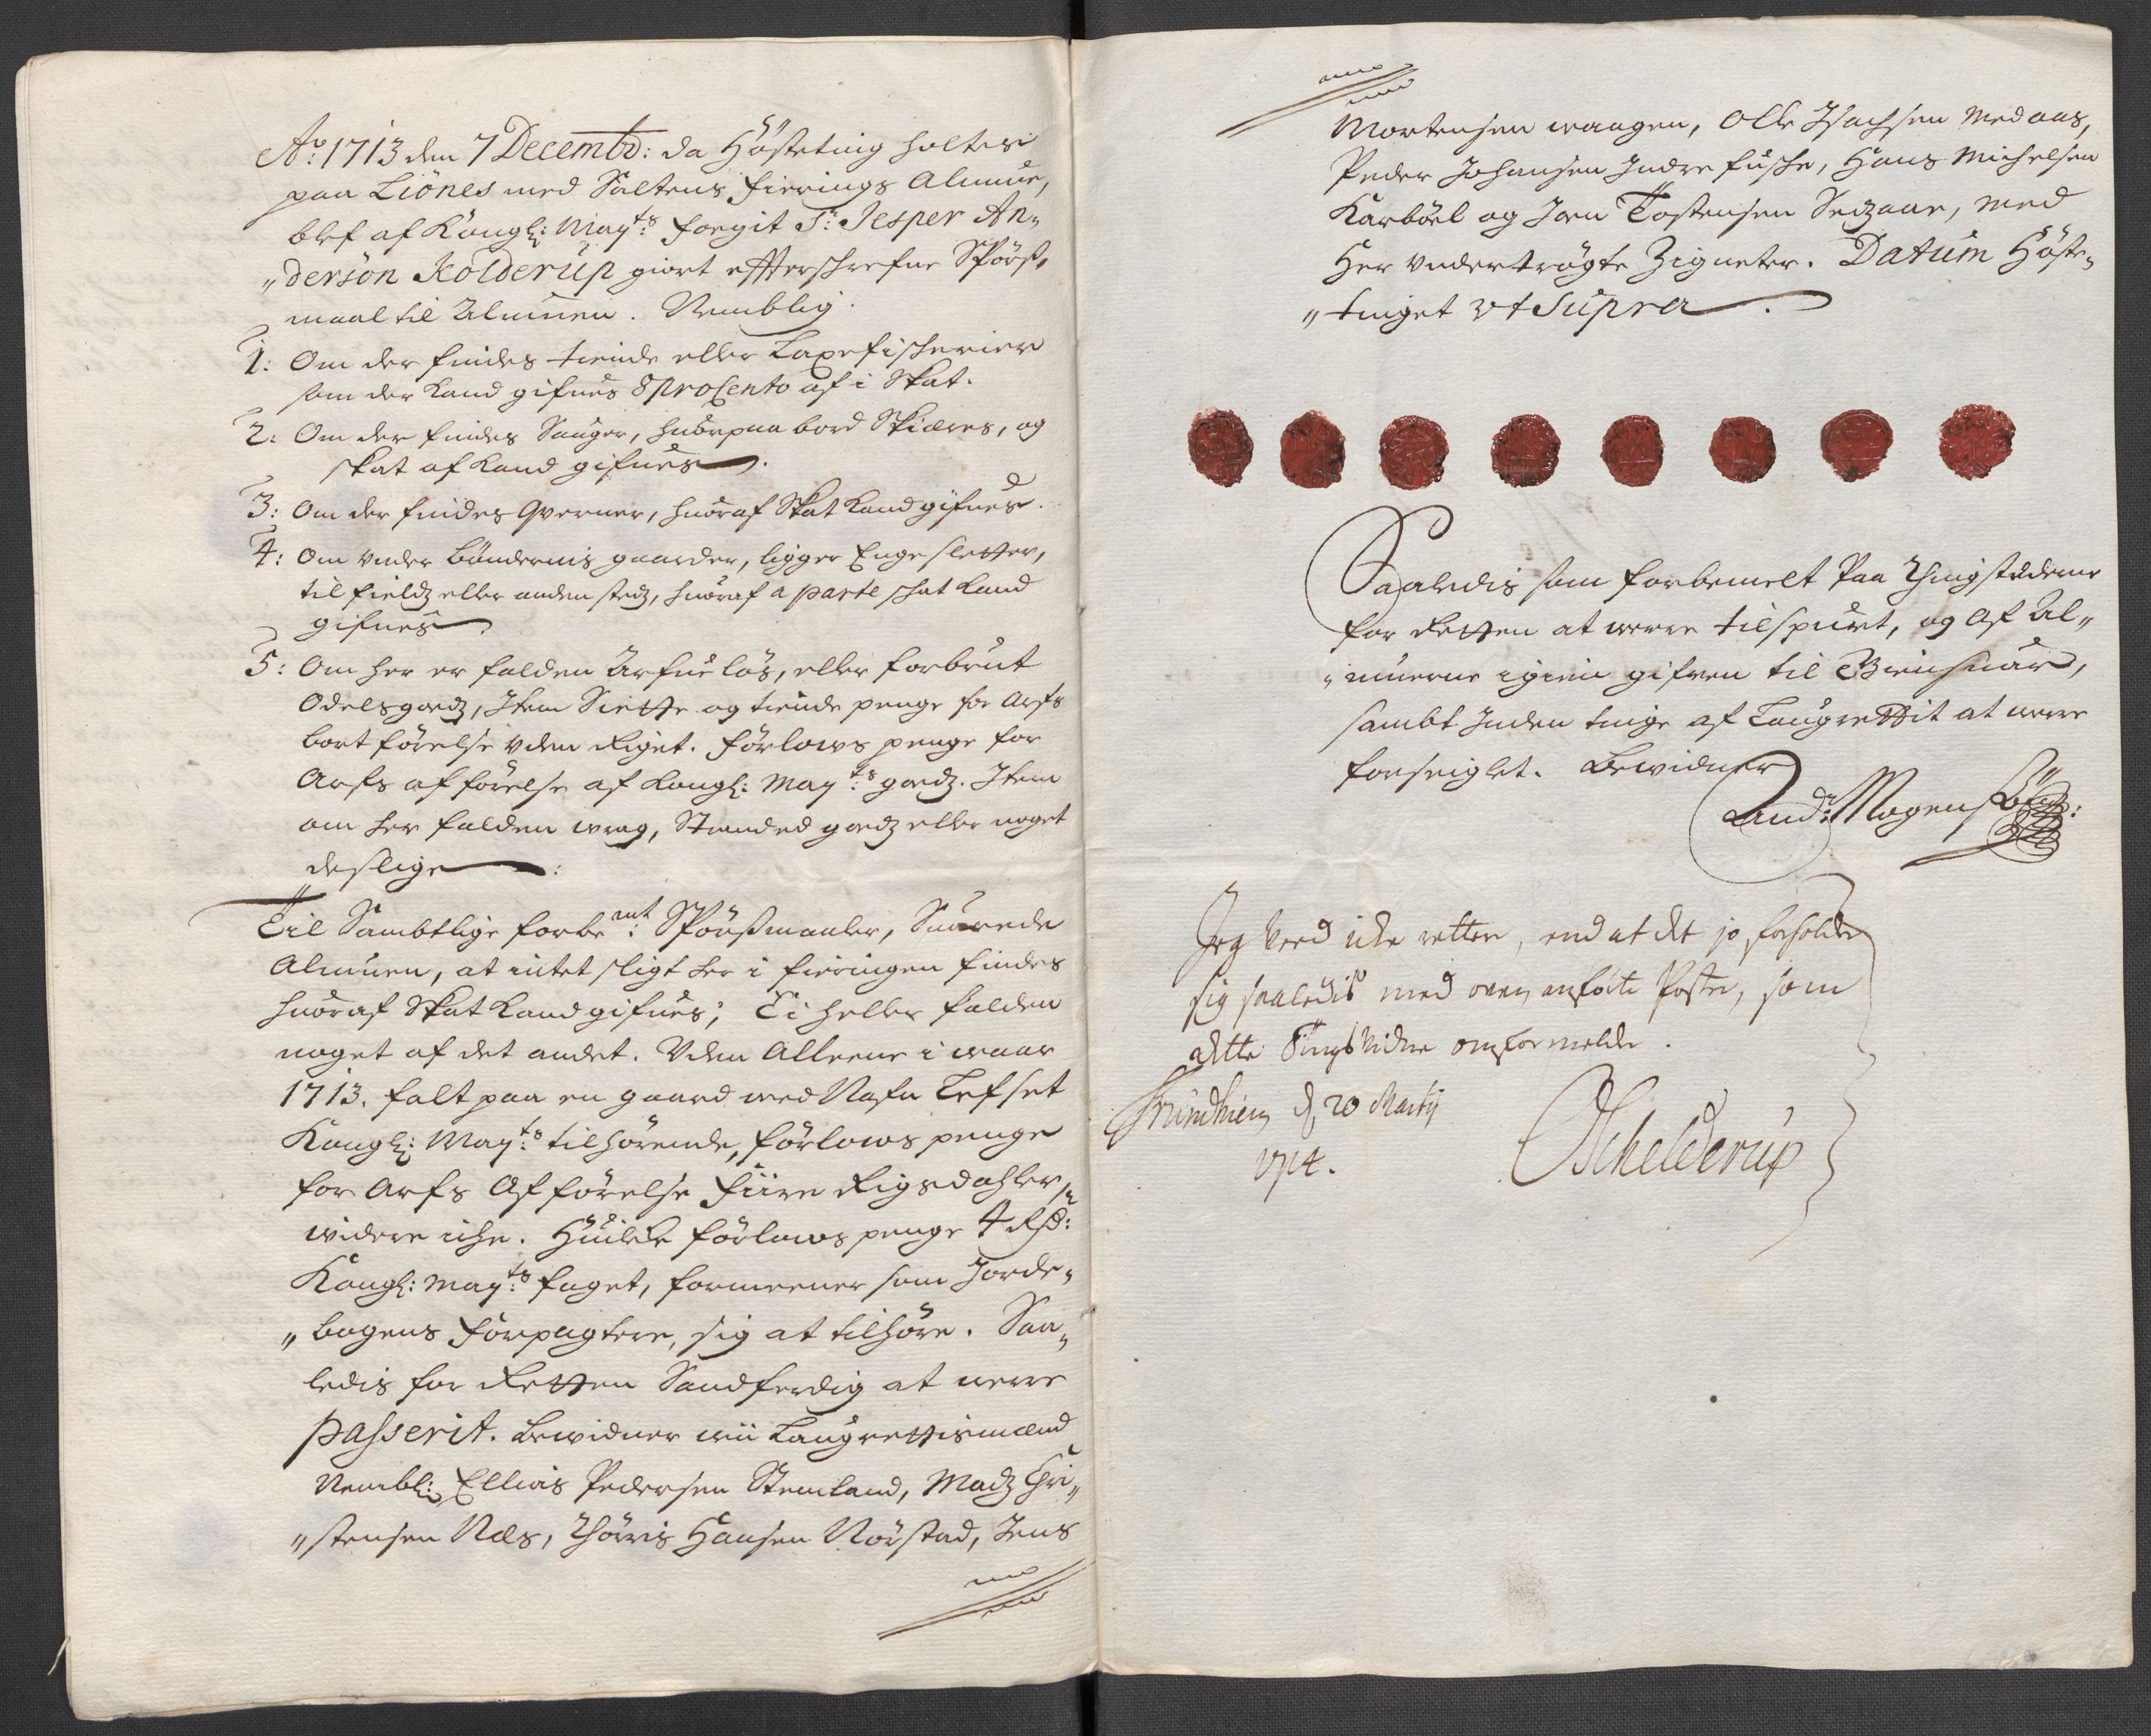 Ao: 1713 den 7 Decembr: da Hösteting holtes
paa Liönes med Saltens fierings Almue,
blef af Kongl: May:ts foegit Sr: Jesper An„
„derson Kolderup giort effterschrefne Spörs„
maal til Almuen. Nemblig.
1: Om der findes tiende eller Laxefischerier
som der kand gifues 8 procento af i Skat.
2: Om der findes Sauger, huorpaa bord Skiæres, og
skat af kand gifues.
3: Om der findes Qverner, huoraf Skat kand gifues.
4: Om vnder böndernis gaarder, ligger Engesletter,
til fieldz eller anden stedz, huoraf a parte schat kand
gifues
5: Om her er falden Arfue lös, eller forbrut
Odelsgoedz, Item Siette og tiende penge for Arfs
bort förelse vden Riget. förlows penge for
Arfs afförelse af Kongl: May:ts goedz. Item
om her falden wrag, Stranded goedz eller noget
deslige:
Til Sambtlige forbe:mt Spörsmaaler, Suarede
Almuen, at intet sligt her i fieringen findes
huoraf Skat kand gifues; Ei heller falden
noget af det andet. Vden Alleene i waar
1713. falt paa en gaard med Nafn Lefset
Kongl: May:ts tilhörende, förlows penge
for Arfs Afförelse fiire Rigsdahler,
widere iche. Huilche förlows penge 4 Rd:
Kongl: May:ts foget, formeener som Jorde„
„bogens forpagtere, sig at tilhöre. Saa„
ledis for Retten Sandferdig at were
passerit. Bewidner wii Laugrettismænd
Nembl: Ellias Pedersen Stemland, Madz Chri„
„stensen Næs, Thörris Hansen Nöistad, Jens
Mortensen wangen, Olle Isachsen Medaas,
Peder Johansen Indre fuske, Hans Michelsen
Karböel og Joen Tostensen Setzaae, med
Her vndertrögte Zigneter. Datum Höste„
„tinget vt Supra.
Saaledis som forbemelt paa Thingstederne
for Retten at were tilspurt, og af Al„
„muerne igien gifuen til Giensuar,
sambt Inden tinge af Laugrettit at were
forseiglet. Bewidner
And: Mogensøn:
Jeg veed icke rettere, end at det jo forholder
sig saaledis med ovenanførte Poster, som
dette Tingsvidne omformelder.
Trundhiem d. 20 Martij
1714.
Schelderup